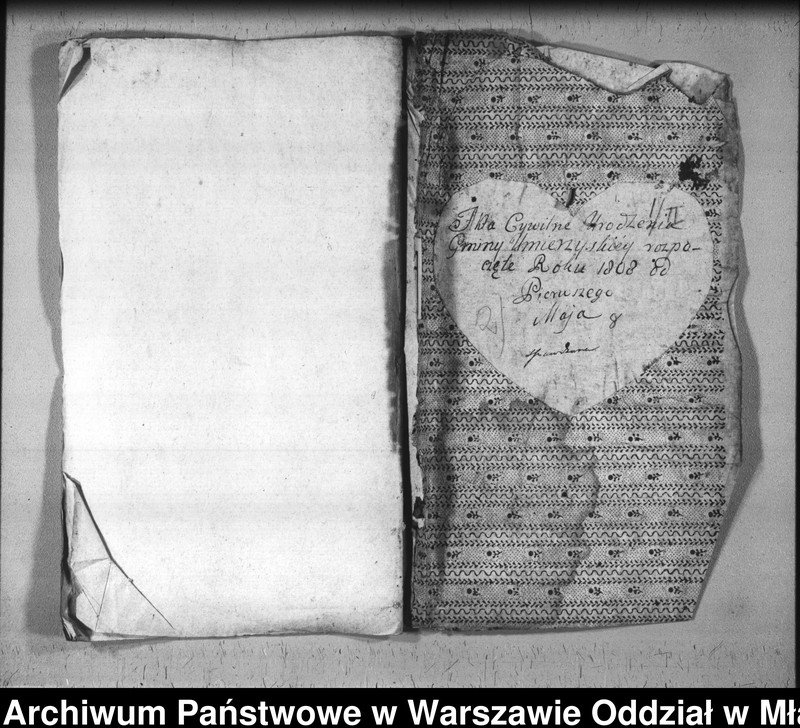 II
Akta Cywilne Urodzenia
Gminy Umierzyskiey rozpo-
częte Roku 1808 od
Pierwszego
Maja
2)
sprawdzone
Archiwum Państwowe w Warszawie Oddział w Mła